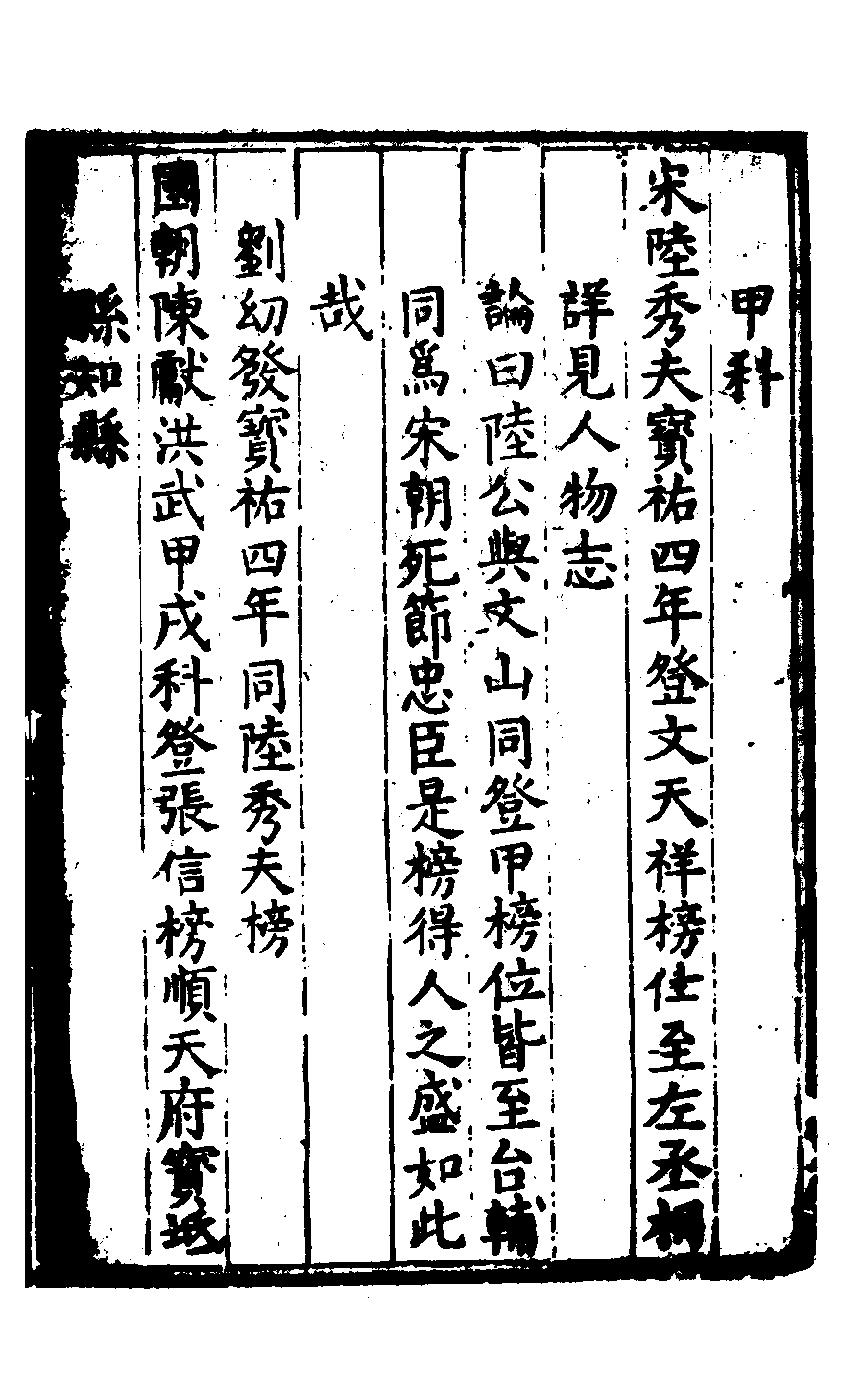 甲科
宋陸秀夫寶祐四年登文天祥榜仕至左丞相
詳見人物志
論曰陸公與文山同登甲榜位皆至台輔
同爲宋朝死節忠臣是榜得人之盛如此
哉
劉幻發寶祐四年同陸秀夫榜
國朝陳獻洪武甲戌科登張信榜順天府寶坻
縣知縣